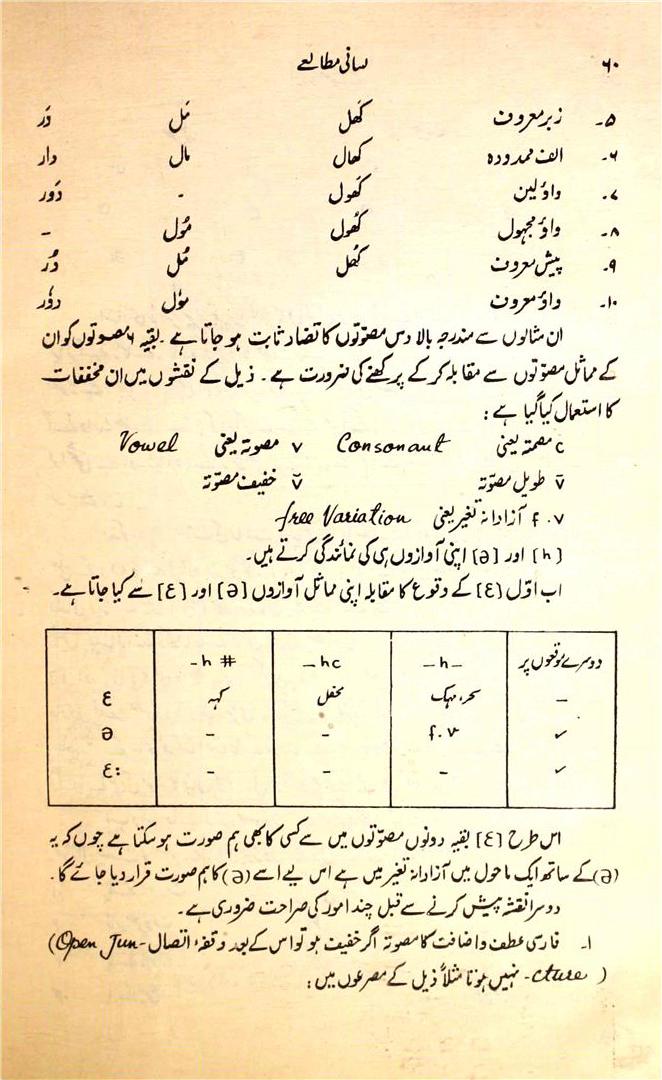 ۶۰ لسانی مطالعے
۵۔ زبر معروف کَھل مَل دَر
۶۔ الف ممدودہ کھال مال دار
۷۔ واؤ لین کَھول - دَور
۸۔ واؤ مجہول کھول مول -
۹۔ پیش معروف کُھل مُل دُر
۱۰۔ واؤ معروف مُول دُور
ان مثالوں سے مندرجہ بالا دس مصوّتوں کا تضاد ثابت ہو جاتا ہے۔ بقیہ ۶ مصوتوں کو ان
کے مماثل مصوّتوں سے مقابلہ کر کے پرکھنے کی ضرورت ہے۔ ذیل کے نقشوں میں ان مخففات
کا استعمال کیا گیا ہے:
c مصمتہ یعنی Consonant v مصوتہ یعنی Vowel
v̄ طویل مصوّتہ v̆ خفیف مصوّتہ
f.v آزادانہ تغیر یعنی free Variation
[h] اور [ə] اپنی آوازوں ہی کی نمائندگی کرتے ہیں۔
اب اوّل [ɛ] کے وقوع کا مقابلہ اپنی مماثل آوازوں [ə] اور [ɛ:] سے کیا جاتا ہے۔
دوسرے موقعوں پر -h- -hc -h #
- سحر، مہک محفل کہہ ɛ
✓ f.v - - ə
✓ - - - ɛ:
اس طرح [ɛ] بقیہ دونوں مصوّتوں میں سے کسی کا بھی ہم صورت ہو سکتا ہے چوں کہ یہ
(ə) کے ساتھ ایک ماحول میں آزادانہ تغیر میں ہے اس لیے اسے (ə) کا ہم صورت قرار دیا جائے گا۔
دوسرا نقشہ پیش کرنے سے قبل چند امور کی صراحت ضروری ہے۔
۱۔ فارسی عطف و اضافت کا مصوتہ اگر خفیف ہو تو اس کے بعد وقفۂ اتصال (Open Jun-
cture) نہیں ہوتا مثلاً ذیل کے مصرعوں میں: